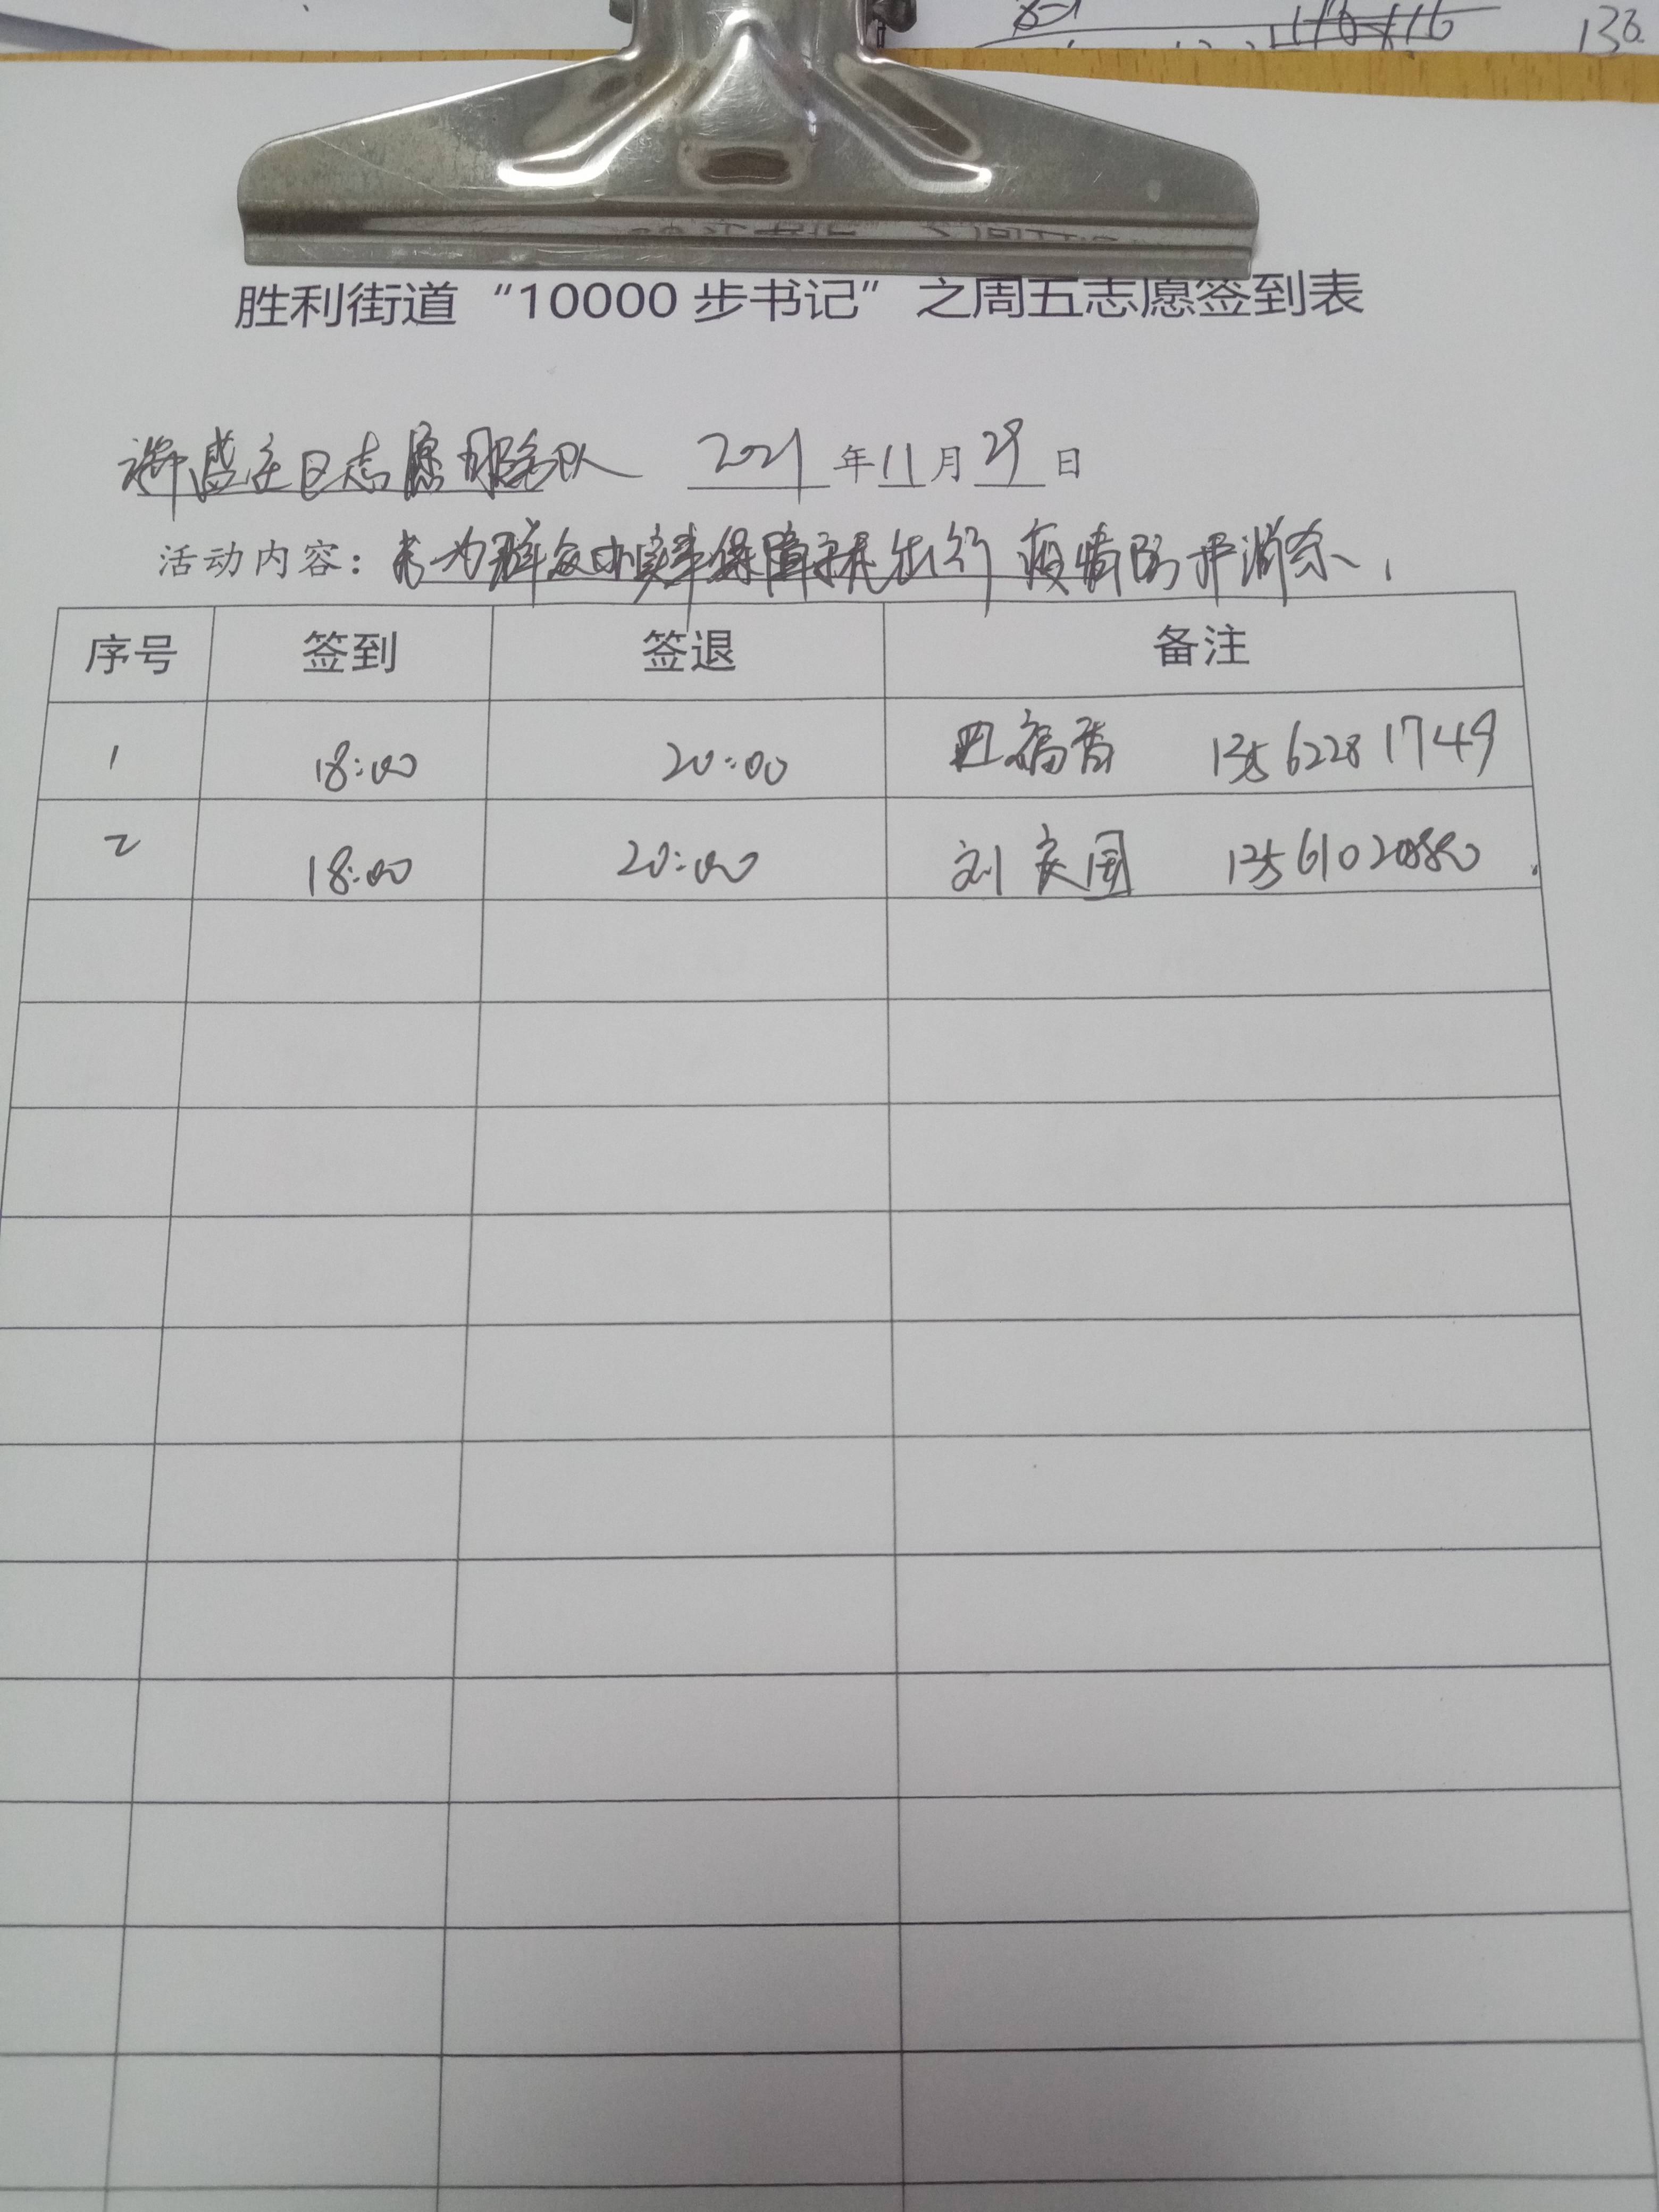 胜利街道“10000步书记”之周五志愿签到表
盛 区志愿服务队 2021年11月29日
活动内容: 为群众办实事保障 出行 疫情防护消杀、
序号 签到 签退 备注
1 18:00 20:00 福香 13562281749
2 18:00 20:00 刘庆国 135610